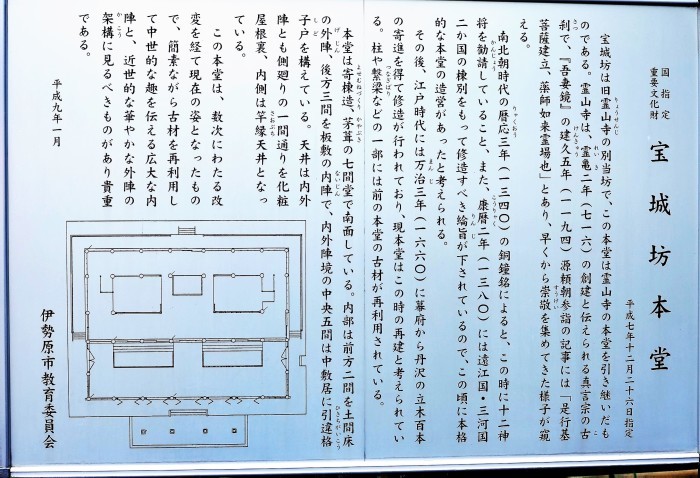 国指定
重要文化財
宝城坊本堂
平成七年十二月二十六日指定
宝城坊は旧霊山寺の別当坊で、この本堂は霊山寺の本堂を引き継いだも
のである。霊山寺は、霊亀二年(七一六)の創建と伝えられる真言宗の古
刹で、『吾妻鏡』の建久五年(一一九四)源頼朝参詣の記事には「是行基
菩薩建立、薬師如来霊場也」とあり、早くから崇敬を集めてきた様子が窺
える。
南北朝時代の暦応三年(一三四〇)の銅鐘銘によると、この時に十二神
将を勧請していること、また、康暦二年(一三八〇)には遠江国・三河国
二か国の棟別をもって修造すべき綸旨が下されているので、この頃に本格
的な本堂の造営があったと考えられる。
その後、江戸時代には万治三年(一六六〇)に幕府から丹沢の立木百本
の寄進を得て修造が行われており、現本堂はこの時の再建と考えられてい
る。柱や繋梁などの一部には前の本堂の古材が再利用されている。
本堂は寄棟造、茅葺の七間堂で南面している。内部は前方二間を土間床
の外陣、後方三間を板敷の内陣で、内外陣境の中央五間は中敷居に引違格
子戸を構えている。天井は内外
陣とも側廻りの一間通りを化粧
屋根裏、内側は竿縁天井となっ
ている。
この本堂は、数次にわたる改
変を経て現在の姿となったもの
で、簡素ながら古材を再利用し
て中世的な趣を伝える広大な内
陣と、近世的な華やかな外陣の
架構に見るべきものがあり貴重
である。
平成九年一月
伊勢原市教育委員会